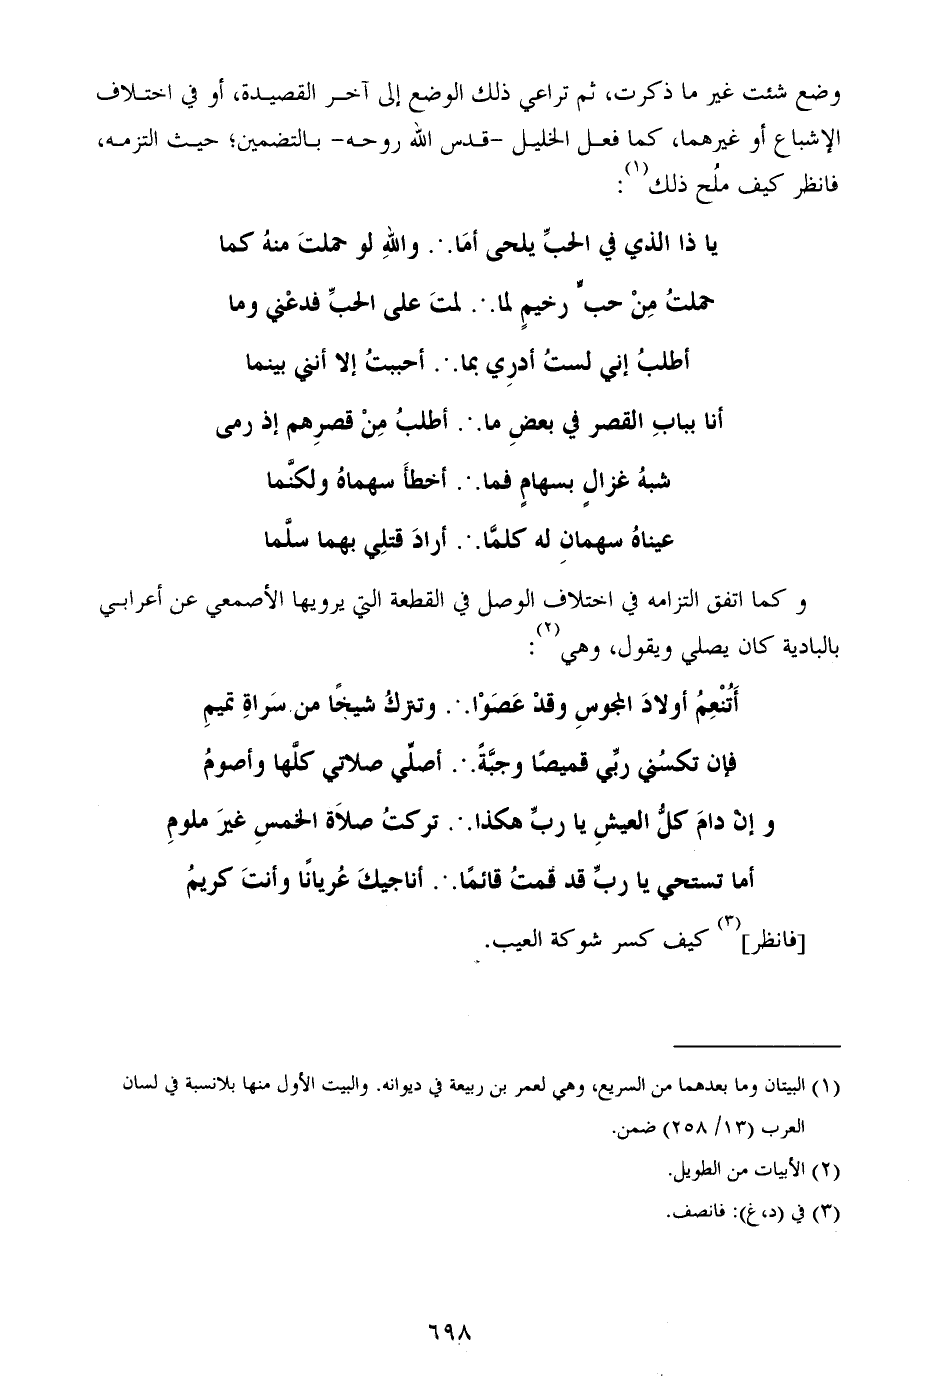 وضع شئت غير ما ذكرت، ثم تراعي ذلك الوضع إلى آخر القصيدة، أو في اختلاف
الإشباع أو غيرهما، كما فعل الخليل -قدس الله روحه- بالتضمين؛ حيث التزمه،
فانظر كيف ملُح ذلك(١):
يا ذا الذي في الحبِّ يلحى أمَا.∙. واللهِ لو حملتَ منهُ كما
حملتُ مِنْ حبٍّ رخيمٍ لما.∙. لمتَ على الحبِّ فدعْني وما
أطلبُ إني لستُ أدرِي بما.∙. أحببتُ إلا أنني بينما
أنا ببابِ القصر في بعضِ ما.∙. أطلبُ مِنْ قصرِهم إذ رمى
شبهُ غزالٍ بسهامٍ فما.∙. أخطأَ سهماهُ ولكنَّما
عيناهُ سهمانِ له كلمَّا.∙. أرادَ قتلِي بهما سلَّما
و كما اتفق التزامه في اختلاف الوصل في القطعة التي يرويها الأصمعي عن أعرابي
بالبادية كان يصلي ويقول، وهي(٢):
أَتُنْعِمُ أولادَ المجوسِ وقدْ عَصَوْا.∙. وتتركُ شيخًا من سَراةِ تميمِ
فإن تكسُني ربِّي قميصًا وجبَّةً.∙. أصلّي صلاتي كلَّها وأصومُ
و إنْ دامَ كلُّ العيشِ يا ربِّ هكذا.∙. تركتُ صلاَة الخمسِ غيرَ ملومِ
أما تستحي يا ربِّ قد قمتُ قائمًا.∙. أناجيكَ عُريانًا وأنتَ كريمُ
[فانظر](٣) كيف كسر شوكة العيب.
(١) البيتان وما بعدهما من السريع، وهي لعمر بن ربيعة في ديوانه. والبيت الأول منها بلانسبة في لسان
العرب (١٣/ ٢٥٨) ضمن.
(٢) الأبيات من الطويل.
(٣) في (د،غ): فانصف.
٦٩٨